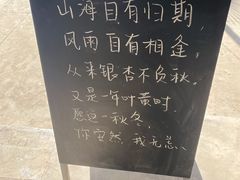 山海自有归期，
风雨自有相逢，
从来银杏不负秋。
又是一年叶黄时，
愿这一秋冬，
你安然，我无恙。